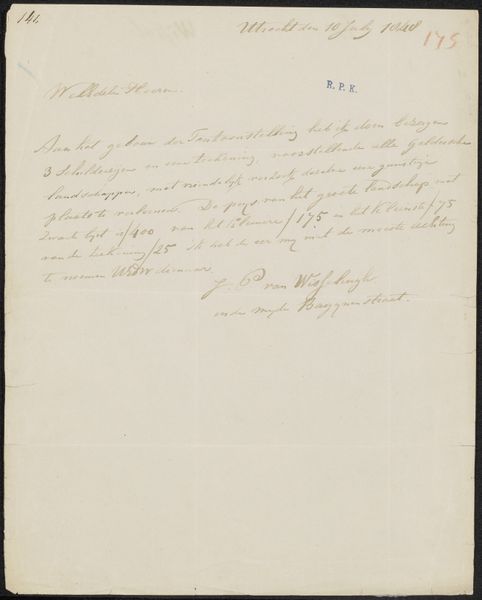 144
Utrecht den 10 July 1848
175
R. P. K.
WelEdele Heeren
Aan het gebouw der Tentoonstelling heb ik doen bezorgen
3 Schilderijen en eene tekening, voorstellende alle Geldersche
landschappen, met vriendelijk verzoek dezelve eene gunstige
plaats te verleenen. De prys van het groote landschap met
Zwarte lyst is ƒ400 van het kleinere ƒ175 en het kleinste ƒ75
van de tekening ƒ25 Ik heb de eer my met de meeste achting
te noemen UEDW dienaar
J. P van Wisselingh
in de wyde Baggynestraat.